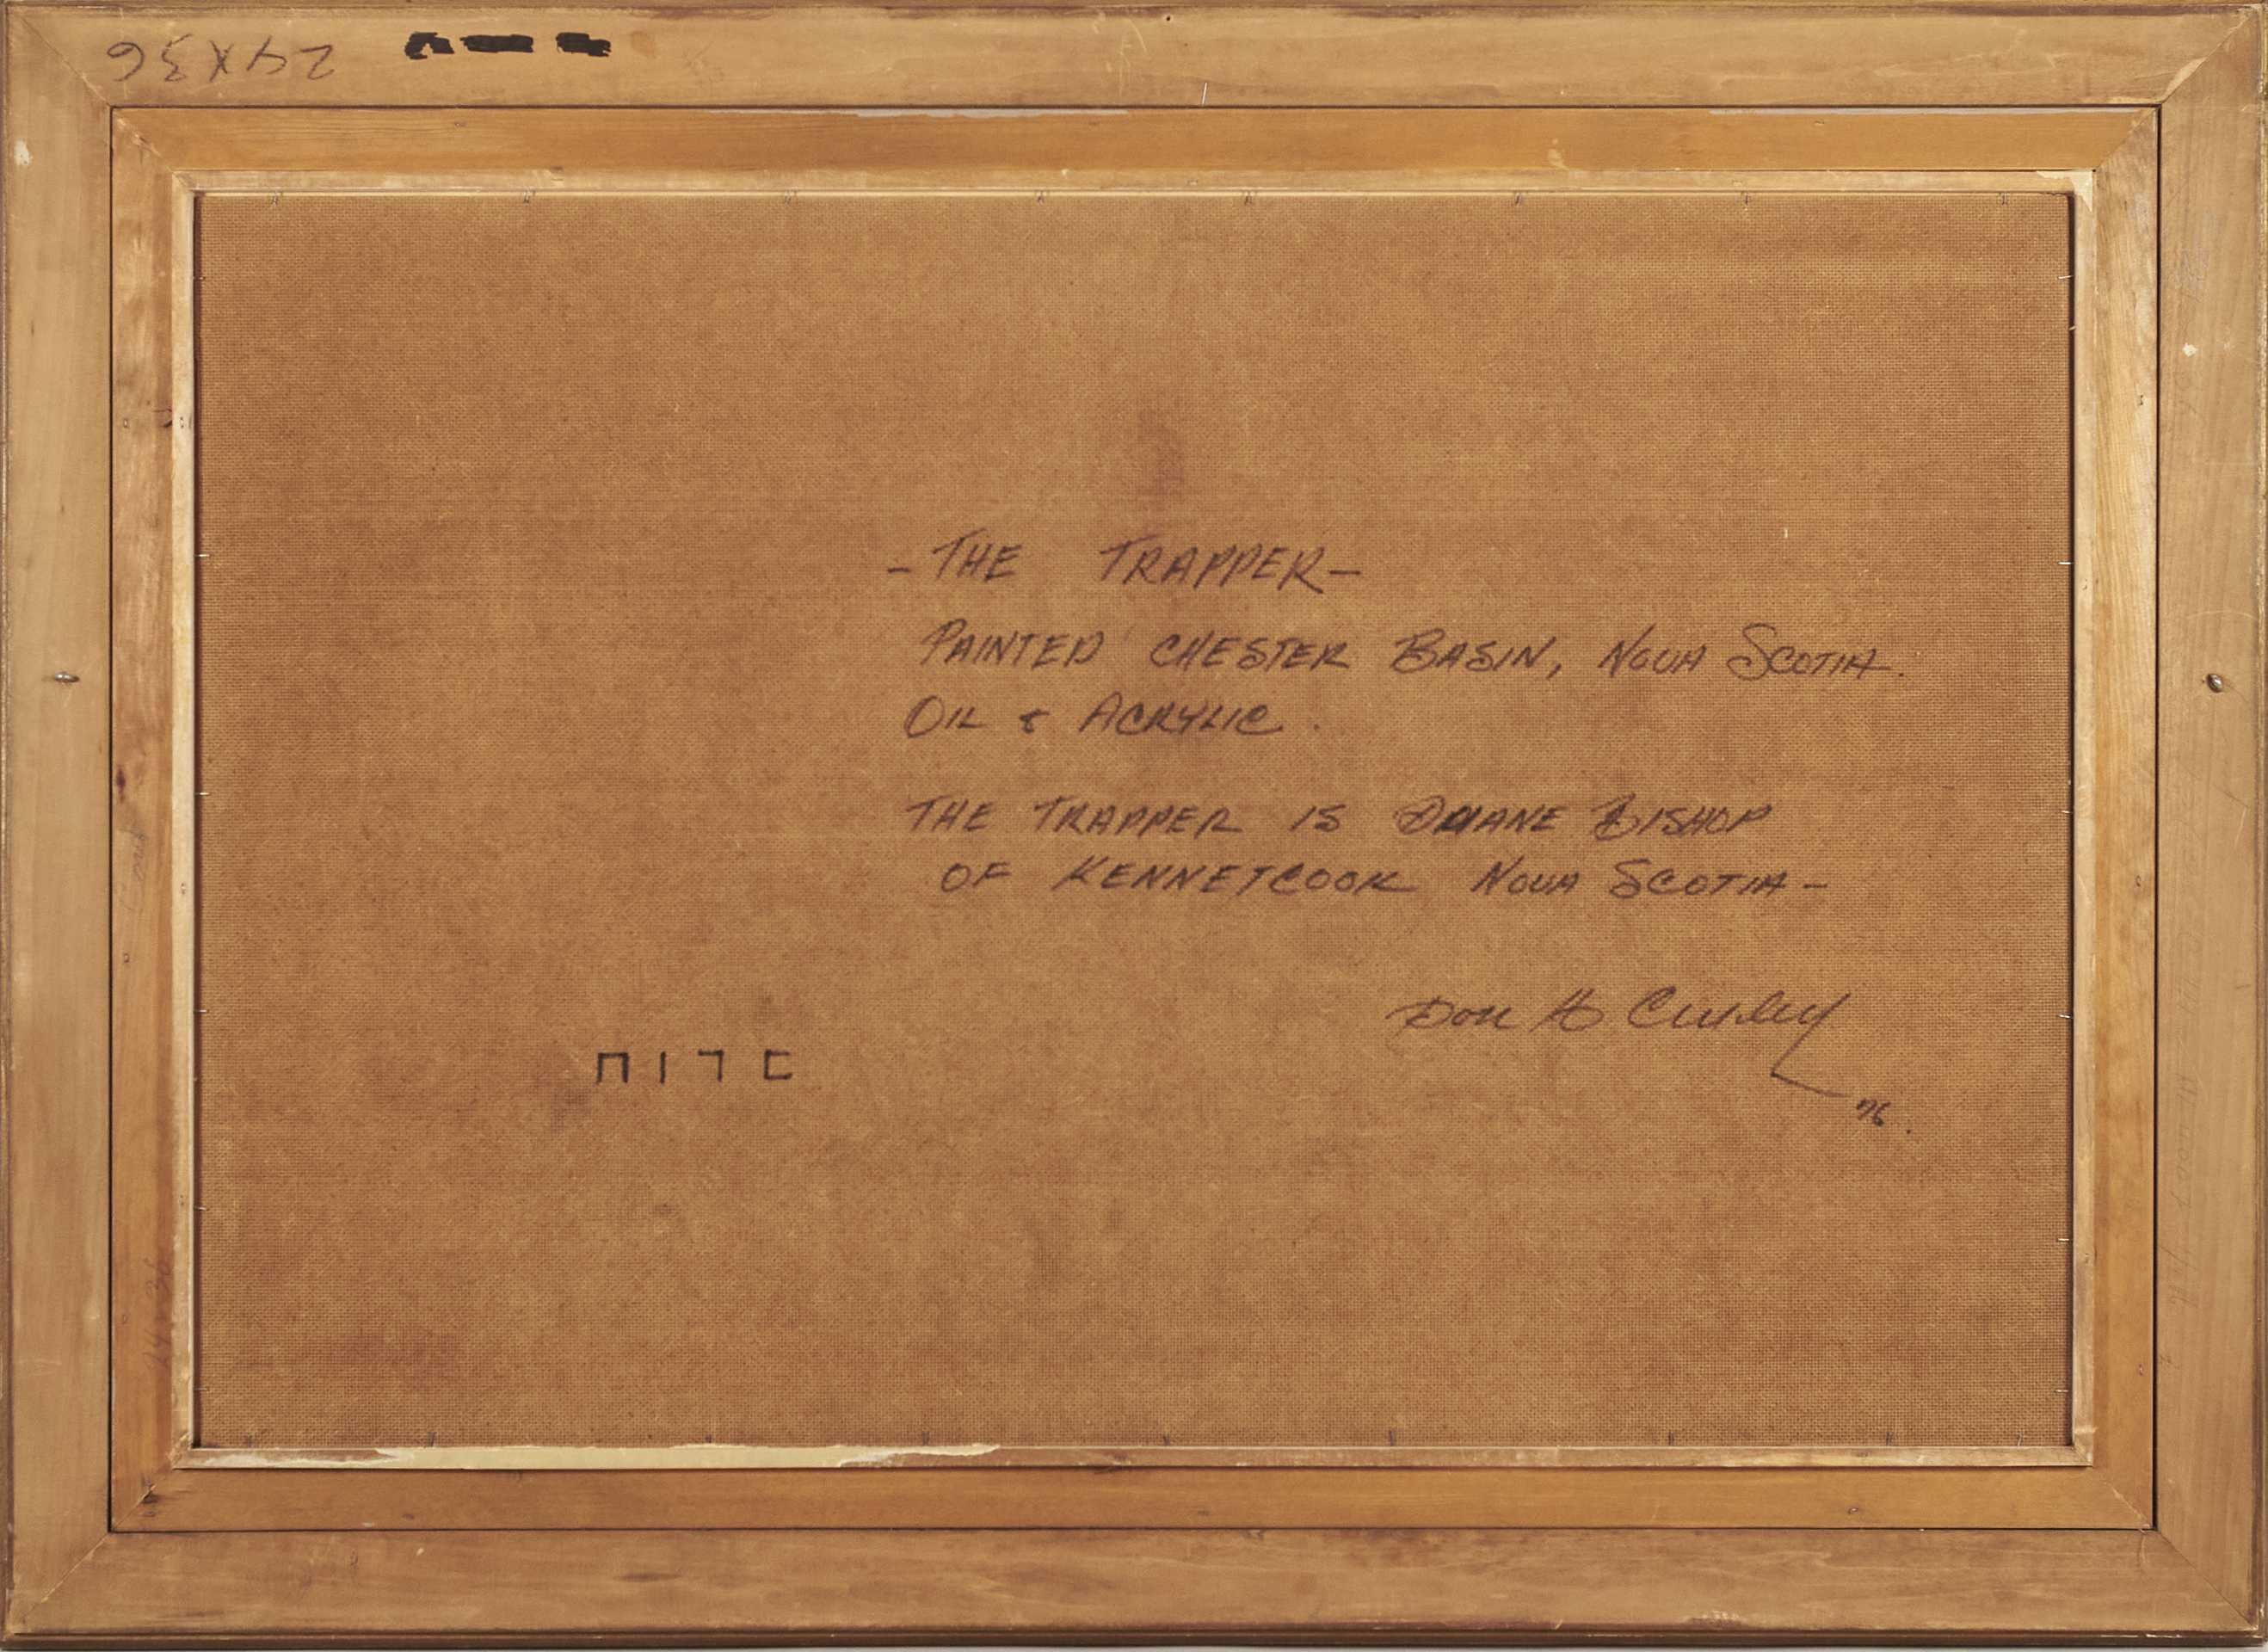 24X36
-THE TRAPPER-
PAINTED CHESTER BASIN, NOVA SCOTIA.
OIL & ACRYLIC.
THE TRAPPER IS DUANE BISHOP
OF KENNETCOOK NOVA SCOTIA-
Don H Curley
76.